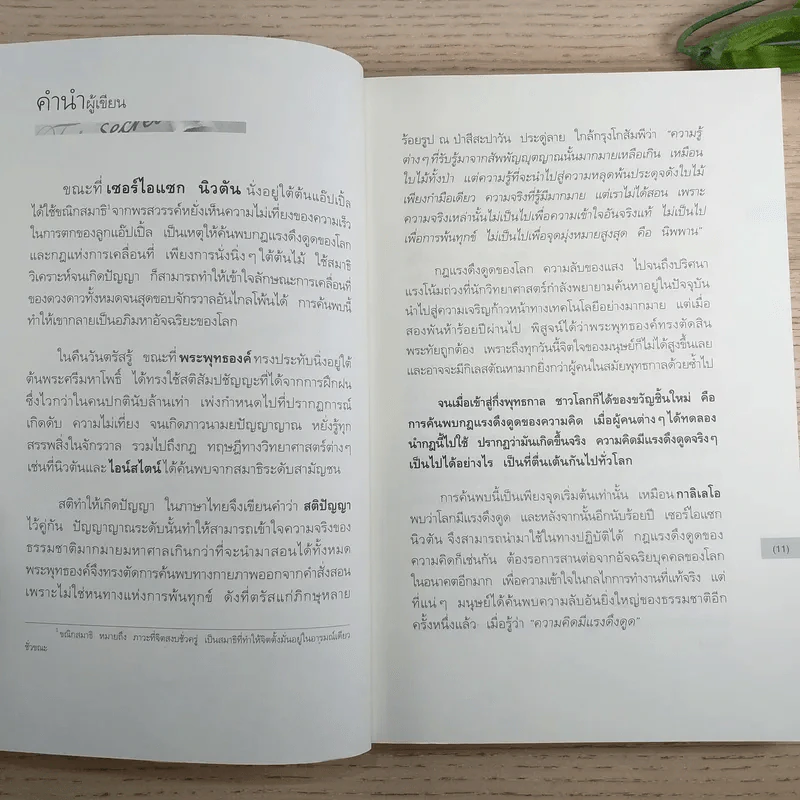 คำนำผู้เขียน
ขณะที่ เซอร์ไอแซก นิวตัน นั่งอยู่ใต้ต้นแอ๊ปเปิ้ล
ได้ใช้ขณิกสมาธิ¹ จากพรสวรรค์หยั่งเห็นความไม่เที่ยงของความเร็ว
ในการตกของลูกแอ๊ปเปิ้ล เป็นเหตุให้ค้นพบกฎแรงดึงดูดของโลก
และกฎแห่งการเคลื่อนที่ เพียงการนั่งนิ่งๆ ใต้ต้นไม้ ใช้สมาธิ
วิเคราะห์จนเกิดปัญญา ก็สามารถทำให้เข้าใจลักษณะการเคลื่อนที่
ของดวงดาวทั้งหมดจนสุดขอบจักรวาลอันไกลโพ้นได้ การค้นพบนี้
ทำให้เขากลายเป็นอภิมหาอัจฉริยะของโลก
ในคืนวันตรัสรู้ ขณะที่ พระพุทธองค์ ทรงประทับนั่งอยู่ใต้
ต้นพระศรีมหาโพธิ์ ได้ทรงใช้สติสัมปชัญญะที่ได้จากการฝึกฝน
ซึ่งไวกว่าในคนปกตินับล้านเท่า เพ่งกำหนดไปที่ปรากฏการณ์
เกิดดับ ความไม่เที่ยง จนเกิดภาวนามยปัญญาญาณ หยั่งรู้ทุก
สรรพสิ่งในจักรวาล รวมไปถึงกฎ ทฤษฎีทางวิทยาศาสตร์ต่างๆ
เช่นที่นิวตันและ ไอน์สไตน์ ได้ค้นพบจากสมาธิระดับสามัญชน
สติทำให้เกิดปัญญา ในภาษาไทยจึงเขียนคำว่า สติปัญญา
ไว้คู่กัน ปัญญาญาณระดับนั้นทำให้สามารถเข้าใจความจริงของ
ธรรมชาติมากมายมหาศาลเกินกว่าที่จะนำมาสอนได้ทั้งหมด
พระพุทธองค์จึงทรงตัดการค้นพบทางกายภาพออกจากคำสั่งสอน
เพราะไม่ใช่หนทางแห่งการพ้นทุกข์ ดังที่ตรัสแก่ภิกษุหลาย
¹ ขณิกสมาธิ หมายถึง ภาวะที่จิตสงบชั่วครู่ เป็นสมาธิที่ทำให้จิตตั้งมั่นอยู่ในอารมณ์เดียว
ชั่วขณะ
ร้อยรูป ณ ป่าสีสะปาวัน ประดู่ลาย ใกล้กรุงโกสัมพีว่า "ความรู้
ต่างๆ ที่รับรู้มาจากสัพพัญญุตญาณนั้นมากมายเหลือเกิน เหมือน
ใบไม้ทั้งป่า แต่ความรู้ที่จะนำไปสู่ความหลุดพ้นประดุจดังใบไม้
เพียงกำมือเดียว ความจริงที่รู้มีมากมาย แต่เราไม่ได้สอน เพราะ
ความจริงเหล่านั้นไม่เป็นไปเพื่อความเข้าใจอันจริงแท้ ไม่เป็นไป
เพื่อการพ้นทุกข์ ไม่เป็นไปเพื่อจุดมุ่งหมายสูงสุด คือ นิพพาน"
กฎแรงดึงดูดของโลก ความลับของแสง ไปจนถึงปริศนา
แรงโน้มถ่วงที่นักวิทยาศาสตร์กำลังพยายามค้นหาอยู่ในปัจจุบัน
นำไปสู่ความเจริญก้าวหน้าทางเทคโนโลยีอย่างมากมาย แต่เมื่อ
สองพันห้าร้อยปีผ่านไป พิสูจน์ได้ว่าพระพุทธองค์ทรงตัดสิน
พระทัยถูกต้อง เพราะถึงทุกวันนี้จิตใจของมนุษย์ก็ไม่ได้สูงขึ้นเลย
และอาจจะมีกิเลสตัณหามากยิ่งกว่าผู้คนในสมัยพุทธกาลด้วยซ้ำไป
จนเมื่อเข้าสู่กึ่งพุทธกาล ชาวโลกก็ได้ของขวัญชิ้นใหม่ คือ
การค้นพบกฎแรงดึงดูดของความคิด เมื่อผู้คนต่างๆ ได้ทดลอง
นำกฎนี้ไปใช้ ปรากฏว่ามันเกิดขึ้นจริง ความคิดมีแรงดึงดูดจริงๆ
เป็นไปได้อย่างไร เป็นที่ตื่นเต้นกันไปทั่วโลก
การค้นพบนี้เป็นเพียงจุดเริ่มต้นเท่านั้น เหมือน กาลิเลโอ
พบว่าโลกมีแรงดึงดูด และหลังจากนั้นอีกนับร้อยปี เซอร์ไอแซก
นิวตัน จึงสามารถนำมาใช้ในทางปฏิบัติได้ กฎแรงดึงดูดของ
ความคิดก็เช่นกัน ต้องรอการสานต่อจากอัจฉริยบุคคลของโลก
ในอนาคตอีกมาก เพื่อความเข้าใจในกลไกการทำงานที่แท้จริง แต่
ที่แน่ๆ มนุษย์ได้ค้นพบความลับอันยิ่งใหญ่ของธรรมชาติอีก
ครั้งหนึ่งแล้ว เมื่อรู้ว่า "ความคิดมีแรงดึงดูด"
(11)